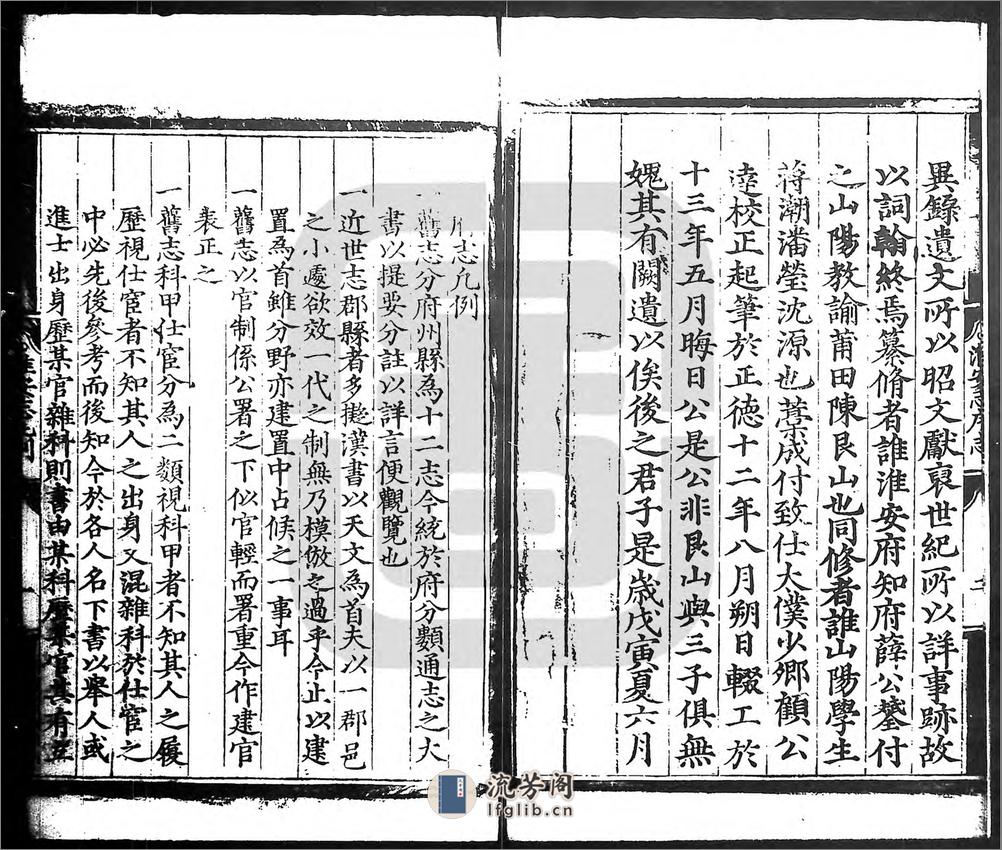 異錄遺文所以昭文獻裒世紀所以詳事跡故
以詞翰終焉纂脩者誰淮安府知府薛公鎏付
之山陽教諭莆田陳艮山也同修者誰山陽學生
蔣潮潘瑩沈源也藁成付致仕大僕少鄉顧公
逵校正起筆於正德十二年八月朔日輟工於
十三年五月晦日公是公非艮山與三子俱無
媿其有闕遺以俟後之君子是歲戊寅夏六月
志凡例
一舊志分府州縣為十二志今統於府分類通志之大
書以提要分註以詳言便觀覽也
一近世志郡縣者多擬漢書以天文為首夫以一郡邑
之小處欲效一代之制無乃模倣之過乎今止以建
置為首雖分野亦建置中占候之一事耳
一舊志以官制係公署之下似官輕而署重今作建官
表正之
一舊志科甲仕宦分為二類視科甲者不知其人之履
歷視仕宦者不知其人之出身又混雜科於仕宦之
中必先後參考而後知今於各人名下書以舉人或
進士出身歷某官雜科則書由某科歷某官其有
流芳阁
lfglib.cn